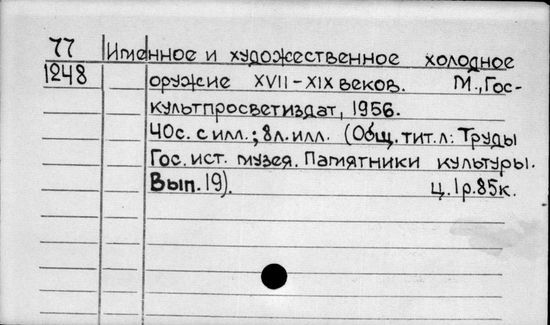 77 Именное и художественное холодное
1248 оружие XVII-XIX веков. М., Гос-
культпросветиздат, 1956.
40с. с илл.; 8л. илл. (Общ. тит. л: Труды
Гос. ист. музея. Памятники культуры.
Вып. 19). Ц. 1р. 85к.